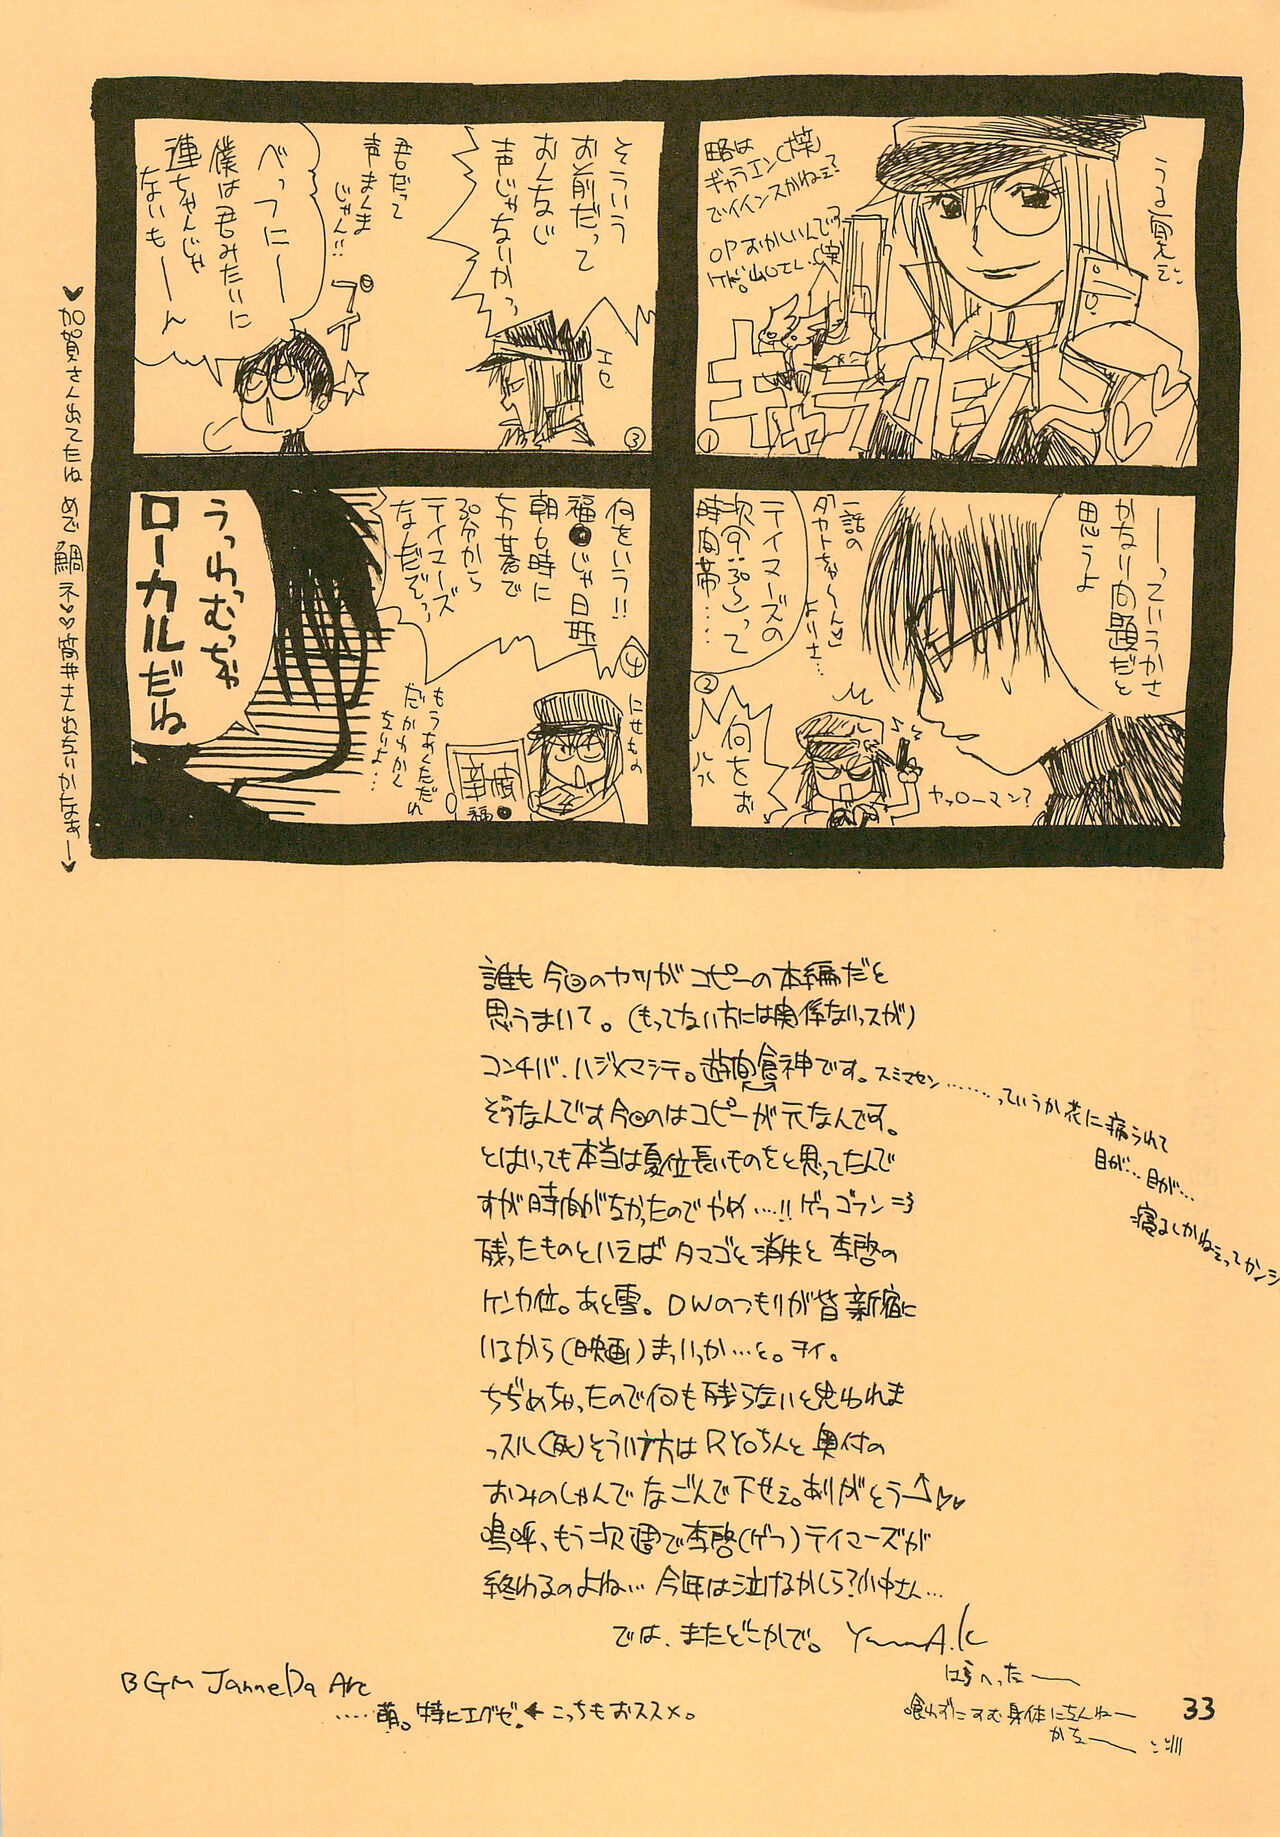 うる覚え。
略は
ギャラエン(笑)
でイインスかねぇ?
OPおかしいんです
ケド。山口さん…(笑)
①
ーっていうかさ
かなり問題だと
思うよ
一話の
タカトちゃ〜ん♡
よりさ…
テイマーズの
次の。ぷ〜って
時間帯…
②
何をお
ヤッローマン?
そういう
お前だって
おんなじ
声じゃないかっ
エセ
③
君だって
声まんま
じゃん!!
プイ
べっつにー
僕は君みたいに
連ちゃんじゃ
ないもーーん
何をいう!!
福●じゃ日旺
朝6時に
から
テイマーズ
なんだぞっ
④
にせもの
福●
もうあくだだれ
だかわかん
ないよ…
うっわむっちゃ
ローカルだね
♥加賀さん出てたね めで鯛ネ♥♥筒井さん出ないかなぁー♥
誰も今回のヤツがコピーの本編だと
思うまいて。(もってない方には関係ないっスが)
コンチバ.ハジメマシテ。遊間食神です。スミマセン………っていうか花に病られて
目が…目が…
寝るしかねぇってカンジ
そうなんです今回のはコピーが元なんです。
とはいっても本当は夏位長いものをと思ってたんで
すが時間がなかったのでやめ…!!ゲフゴフン
残ったものといえばタマゴと消失と李啓の
ケンカ位。あと雪。DWのつもりが皆新宿に
いるから(映画)まっいっか…と。ヲイ。
ちぢめちゃったので何も残らないと思われま
っスル(死)そういう方はRYOちんと奥付の
おみのしゃんでなごんで下せぇ。ありがとうー↑♡♥
嗚呼、もう次週で李啓(ゲフ)テイマーズが
終わるのよね… 今年は泣けるかしら?小中さん…
では、またどこかで。 YumA.K
はらへったー
喰わずにすむ身体にちんねー
かなー
BGM Janne Da Arc
……萌。特にエグゼ!← こっちもおススメ。
33